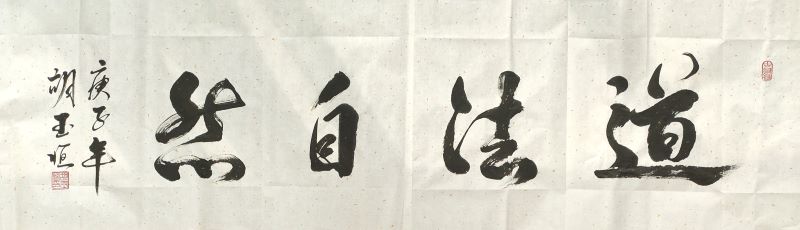 道法自然
庚子年
胡玉恒